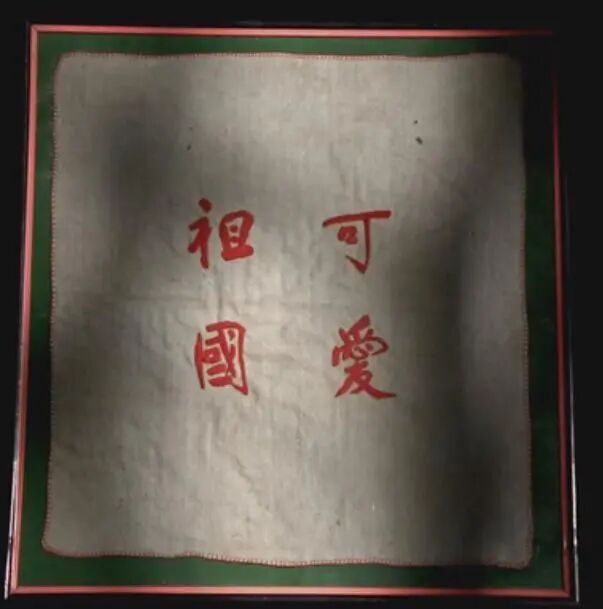 可愛
祖國